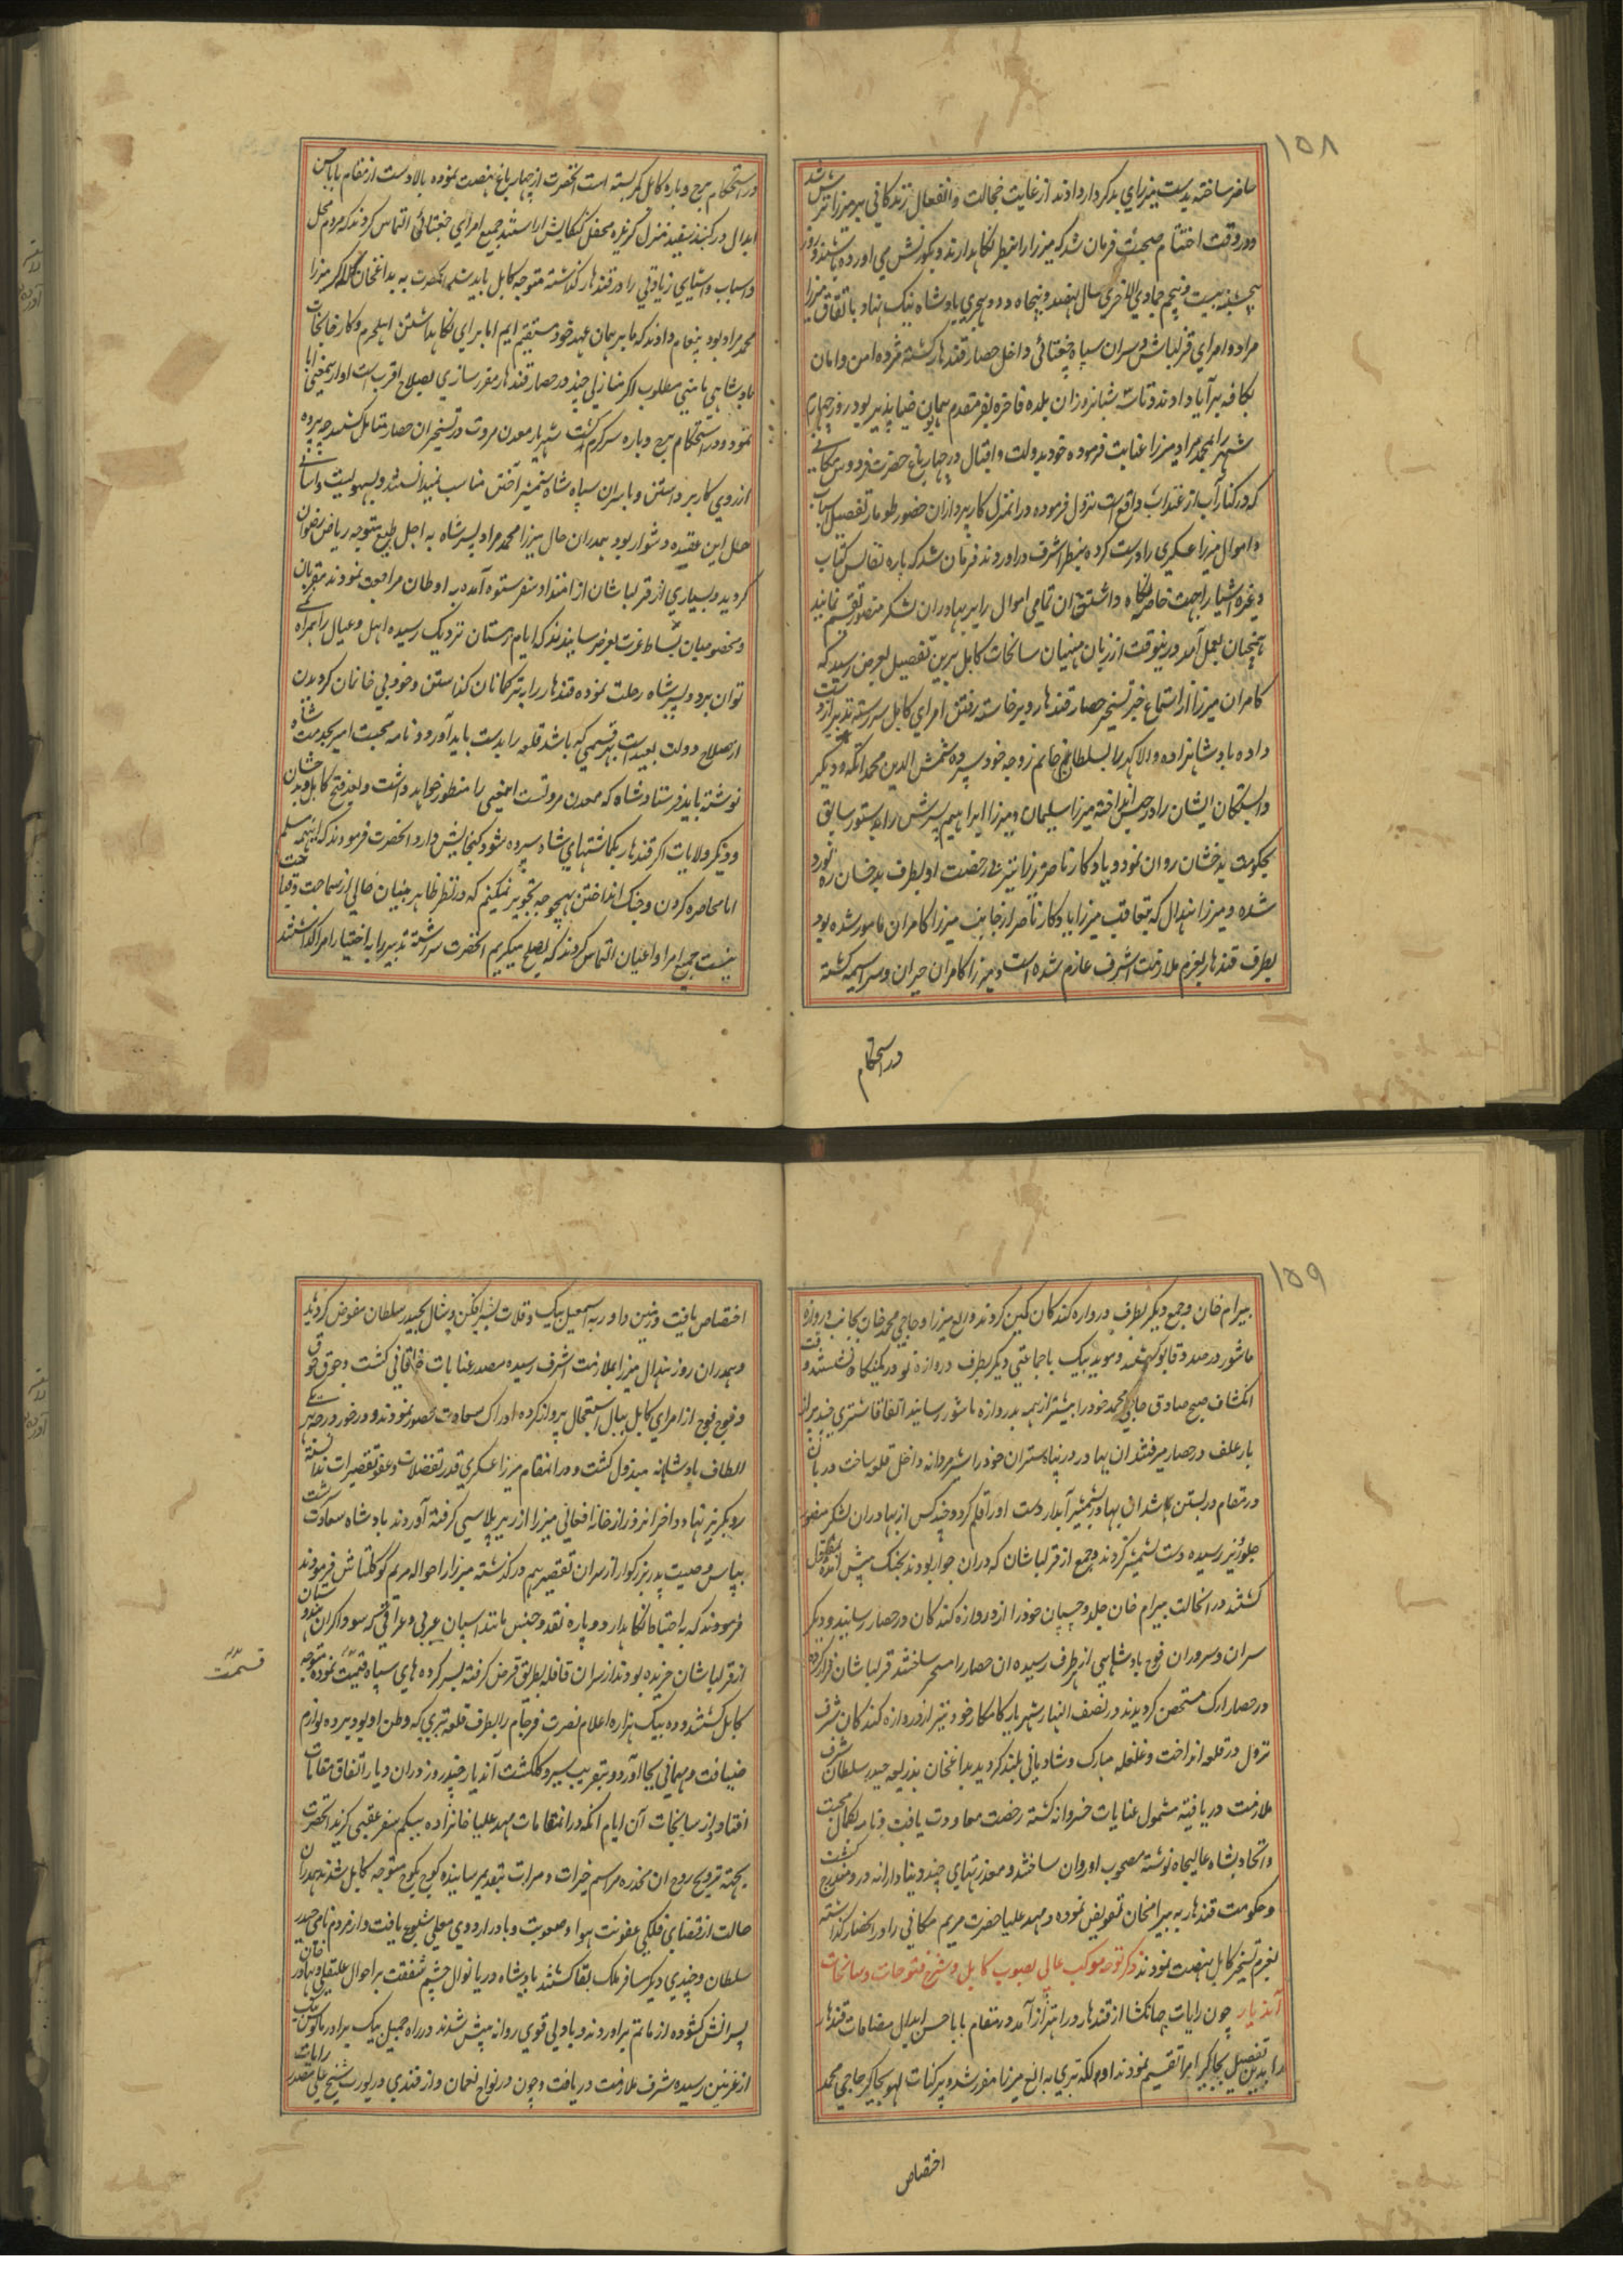 ۱۵۸
حاضر ساخته بدست میرزای بدکردار دادند از غایت خجالت و انفعال زندگانی بر میرزا ترش شد
و در وقت اختتام صحبت فرمان شد که میرزا را نگاهدارند و بکورنش می آورده باشند و روز
پنجشنبه بیست و پنجم جمادی الاخری سال نهصد و پنجاه و دو هجری پادشاه نیک نهاد باتفاق میرزا
مراد و امرای قزلباش و سران سپاه چغتائی داخل حصار قندهار گشته مژده امن و امان
بکافه برآیا دادند و تا سه شبانروز آن بلده فاخره بفر مقدم همایون ضیاپذیر بود روز چهارم
شهر را بمحمد مراد میرزا عنایت فرموده خود بدولت و اقبال در چهارباغ حضرت فردوس مکانی
که در کنار آب ارغنداب واقع است نزول فرموده در انمنزل کارپردازان حضور طومار تفصیل اسباب
و اموال میرزا عسکری را درست کرده بنظر اشرف در اوردند فرمان شد که پاره نفایس کتاب
و غیره اشیا را بجهت خاصه نگاه داشته تمامی اموال را بر بهادران لشکر منصور تقسیم نمایند
همچنان بعمل آمد و درینوقت از زبان منهیان سانحات کابل برین تفصیل بعرض رسید که
کامران میرزا از استماع خبر تسخیر حصار قندهار و برخاسته رفتن امرای کابل سررشته تدبیر از دست
داده پادشاهزاده والاگهر را بسلطانم خانم زوجه خود سپرده شمس الدین محمد اتکه و دیگر
وابستگان ایشان را در حبس انداخته میرزا سلیمان و میرزا ابراهیم پسرش را بدستور سابق
بحکومت بدخشان روان نمود و یادگار ناصر میرزا نیز بیرخصت او بطرف بدخشان ره نورد
شده و میرزا هندال که بتعاقب میرزا یادگار ناصر از جانب میرزا کامران مامور شده بود
بطرف قندهار بعزم ملازمت اشرف عازم شده است و میرزا کامران حیران و سراسیمه گشته
در استحکام
در استحکام برج و باره کابل کمر بسته است انحضرت از چهارباغ نهضت نموده بالادست از مقام بابا حسن
ابدال در گنبد سفید منزل گزیده محفل کنکایش اراستند جمیع امرای چغتائی التماس کردند که مردم محل
و اسباب و اشیای زیادتی را در قندهار گذاشته متوجه کابل باید شد انحضرت به بداغخان که للا کر میرزا
محمد مراد بود پیغام دادند که ما بر همان عهد خود مستقیم ایم اما برای نگاهداشتن اهلحرم و کارخانجات
پادشاهی مامنی مطلوب اگر منازلی چند در حصار قندهار مقرر سازی بصلاح اقرب است او ازینمعنی ابا
نمود و در استحکام برج و باره سرگرم گشت شهریار معدن مروت در تسخیر ان حصار متامل گشتند چه پرده
از روی کار برداشتن و با سران سپاه شاه شمشیر آختن مناسب نمیدانستند و بسهولیت و آسانی
حل این عقیده دشوار بود بمدران حال میرزا محمد مراد پسر شاه به اجل طبیع متوجه ریاض رضوان
گردید و بسیاری از قزلباشان از امتداد سفر ستوه آمده به اوطان مراجعت نمودند مقربان
و مخصوصان بساط عزت بعرض رسانیدند که ایام زمستان نزدیک رسیده اهل و عیال را همراه
توان برد و پسر شاه رحلت نموده قندهار را بترکمانان گذاشتن و خود بی خانمان گردیدن
از صلاح دولت بعید است بهر قسمی که باشد قلعه را بدست باید آورد و نامه محبت امیز بخدمت شاه
نوشته باید فرستاد شاه که معدن مروتست اینمعنی را منظور خواهد داشت و بعد فتح کابل و بدخشان
و دیگر ولایات اگر قندهار بگماشتهای شاه سپرده شود گنجایش دارد انحضرت فرمودند که اینهمه مسلم
اما محاصره کردن و جنگ انداختن بهیچوجه تجویز نمیکنم که در نظر ظاهر بینان خالی از سماجت و قباحت
نیست جمیع امرا و اعیان التماس کردند که بصلح میگیریم انحضرت سررشته تدبیر را به اختیار امرا گذاشتند
۱۵۹
بیرام خان و جمع دیگر بطرف دروازه کندکان کمین کردند و الغ میرزا و حاجی محمد خان بجانب دروازه
ماشور در صدد قابو گشتند و موید بیک با جماعتی دیگر بطرف دروازه نو در کمینگاه نشستند و وقت
انکشاف صبح صادق حاجی محمد خود را پیشتر از همه بدروازه ماشور رسانید اتفاقا شتری چند پر از
بار علف در حصار میرفتند ان بهادر در پناه شتران خود را شیرمردانه داخل قلعه ساخت دربان
در مقام در بستن شد ان بهادر بشمشیر آبدار دست او را قلم کرد و چند کس از بهادران لشکر منصور
جلوریز رسیده دست بشمشیر کردند و جمع از قزلباشان که دران جوار بودند بجنگ پیش آمده بقتل
گشتند در انحالت بیرام خان جلد و چسپان خود را از دروازه کندکان در حصار رسانید و دیگر
سران و سروران فوج پادشاهی از هر طرف رسیده ان حصار را مسخر ساختند قزلباشان فرار کرده
در حصار ارک متحصن گردیدند در نصف النهار شهریار کامکار خود نیز از دروازه کندکان شرف
نزول در قلعه انداخت و غلغله مبارک و شادیانی بلند گردید بداغخان بذریعه حیدر سلطان شرف
ملازمت دریافته مشمول عنایات خسروانه گشته رخصت معاودت یافت و نامه بکمال محبت
و اتحاد بشاه عالیجاه نوشته مصحوب او روان ساختند و معذرتهای چند دنیادارانه در و مندرج گشت
و حکومت قندهار به بیرامخان تفویض نموده و مهد علیا حضرت مریم مکانی را در انحصار گذاشته
بعزم تسخیر کابل نهضت نمودند ذکر توجه موکب عالی بصوب کابل و شرح فتوحات و سانحات
آندیار چون رایات جهانگشا از قندهار در اهتزاز آمد و در مقام بابا حسن ابدال مضافات قندهار
را بدین تفصیل بجاگیر امرا تقسیم نمودند اول الکه تیری به الغ میرزا مقرر شد و پرگنات لهو بجاگیر حاجی محمد
اختصاص
اختصاص یافت و زمین داور به اسمعیل بیک و قلات بشیر افکن و شال بحیدر سلطان مفوض گردید
و همدران روز هندال میرزا بملازمت اشرف رسیده مصدر عنایات خاقانی گشت و جوق جوق
و فوج فوج از امرای کابل ببال استعجال پرواز کرده ادراک سعادت حضور نمودند و در خور در هر یکی
الطاف پادشاهانه مبذول گشت و در انمقام میرزا عسکری قدر تفضلات و عفو تقصیرات ندانسته
رو بگریز نهاد و اخر انروز از خانه افغانی میرزا را از زیر پلاسی گرفته آوردند پادشاه سعادت سرشت
بپاس وصیت پدر بزرگوار از سران تقصیر هم درگذشته میرزا را حواله مریم کوکلتاش فرمودند
فرمودند که به احتیاط نگاهدارد و پاره نقد و جنس مانند اسپان عربی و عراقی که سوداگران هندوستان
از قزلباشان خریده بودند از سران قافله بطریق قرض گرفته بسر کرده های سپاه قیمت نموده متوجه
قسمت
کابل گشتند و دده بیک هزاره اعلام نصرت فرجام را بطرف قلعه تیری که وطن او بود برده لوازم
ضیافت و مهمانی بجا آورد و بتقریب سیر و گلگشت آندیار چند روز دران دیار اتفاق مقامات
افتاد و از سانحات آن ایام انکه در انمقامات مهد علیا خانزاده بیگم سفر عقبی گزید انحضرت
بجهته ترویح روح ان مخدره مراسم خیرات و مبرات بتقدیم رسانیده کوچ بکوچ متوجه کابل شدند همدران
حالت از قضای فلکی عفونت هوا و صعوبت و با در اردوی معلی شیوع یافت و از مردم نامی حیدر
سلطان و چندی دیگر مسافر ملک بقا گشتند پادشاه دریانوال چشم شفقت بر احوال علیقلی خان و بهادر
پسرانش گشوده از ماتم براوردند و با دلی قوی روانه پیش شدند در راه جمیل بیک برادر بابوس بیک
از غزنین رسیده شرف ملازمت دریافت و چون در نواح لعمان و ارقندی در یورت شیخ علی مقدر رایات